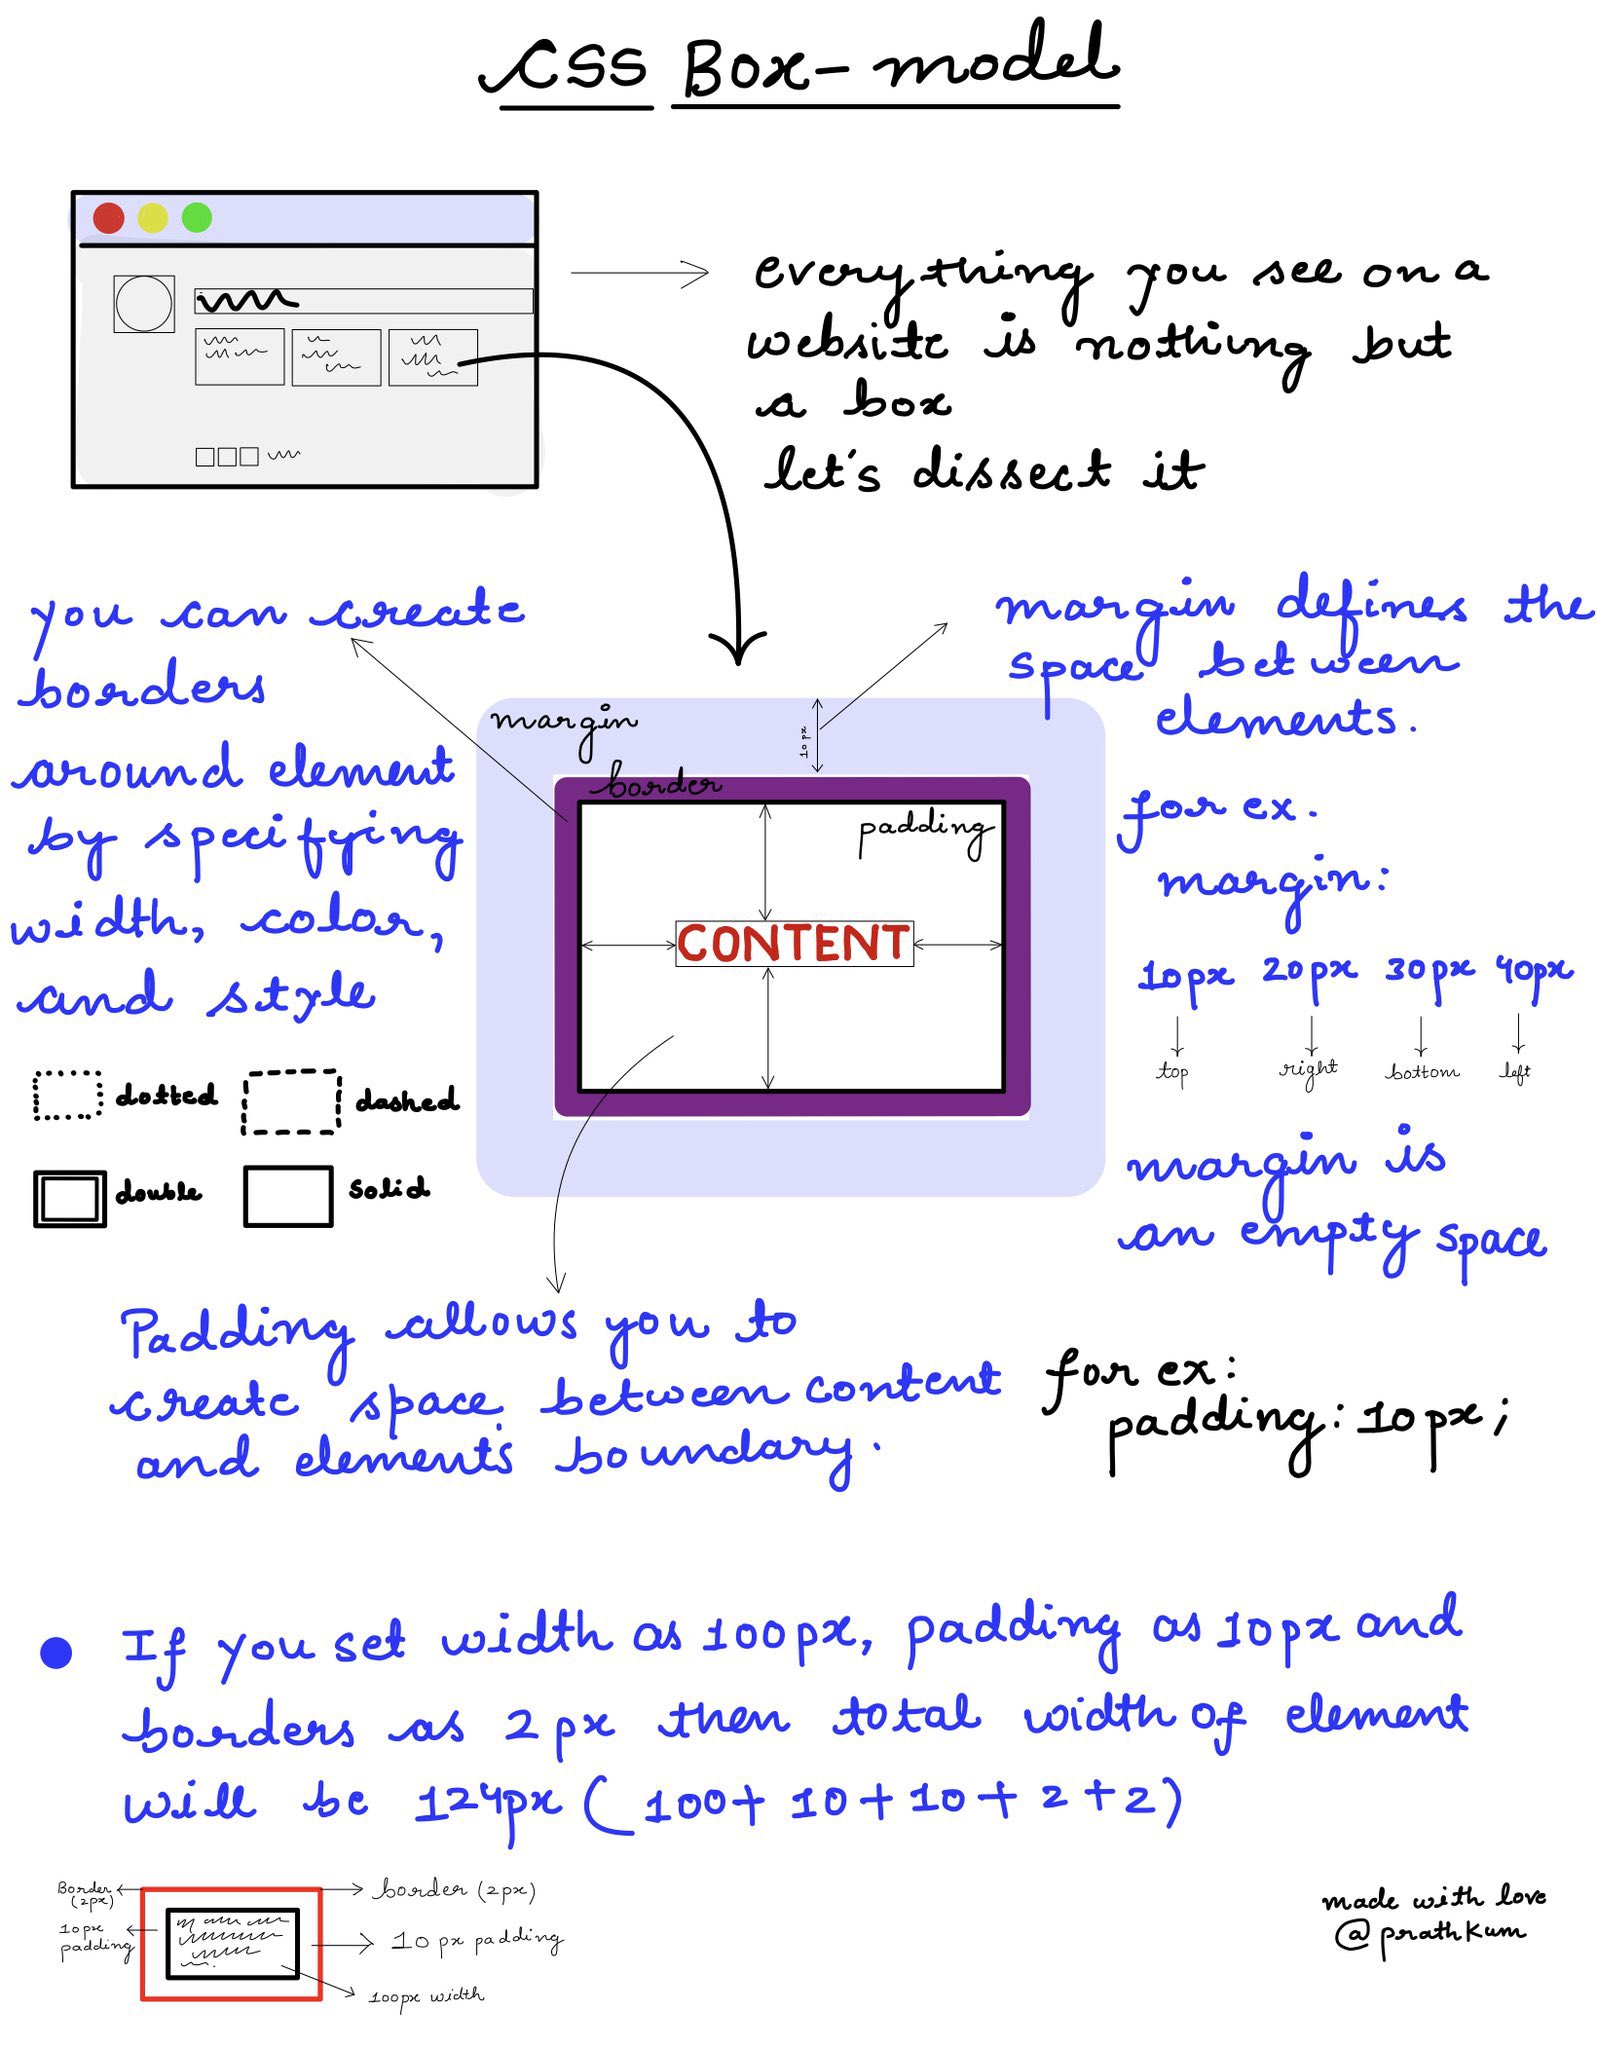 CSS Box-model
everything you see on a
website is nothing but
a box
let's dissect it
you can create
borders
around element
by specifying
width, color,
and style
dotted
dashed
double
solid
margin
10px
border
padding
CONTENT
margin defines the
space between
elements.
for ex.
margin:
10px 20px 30px 40px
top right bottom left
margin is
an empty space
Padding allows you to
create space between content
and element's boundary.
for ex:
padding: 10px;
If you set width as 100px, padding as 10px and
borders as 2px then total width of element
will be 124px (100+ 10 + 10 + 2 + 2)
Border
(2px)
10px
padding
border (2px)
10 px padding
100px width
made with love
@prathkum